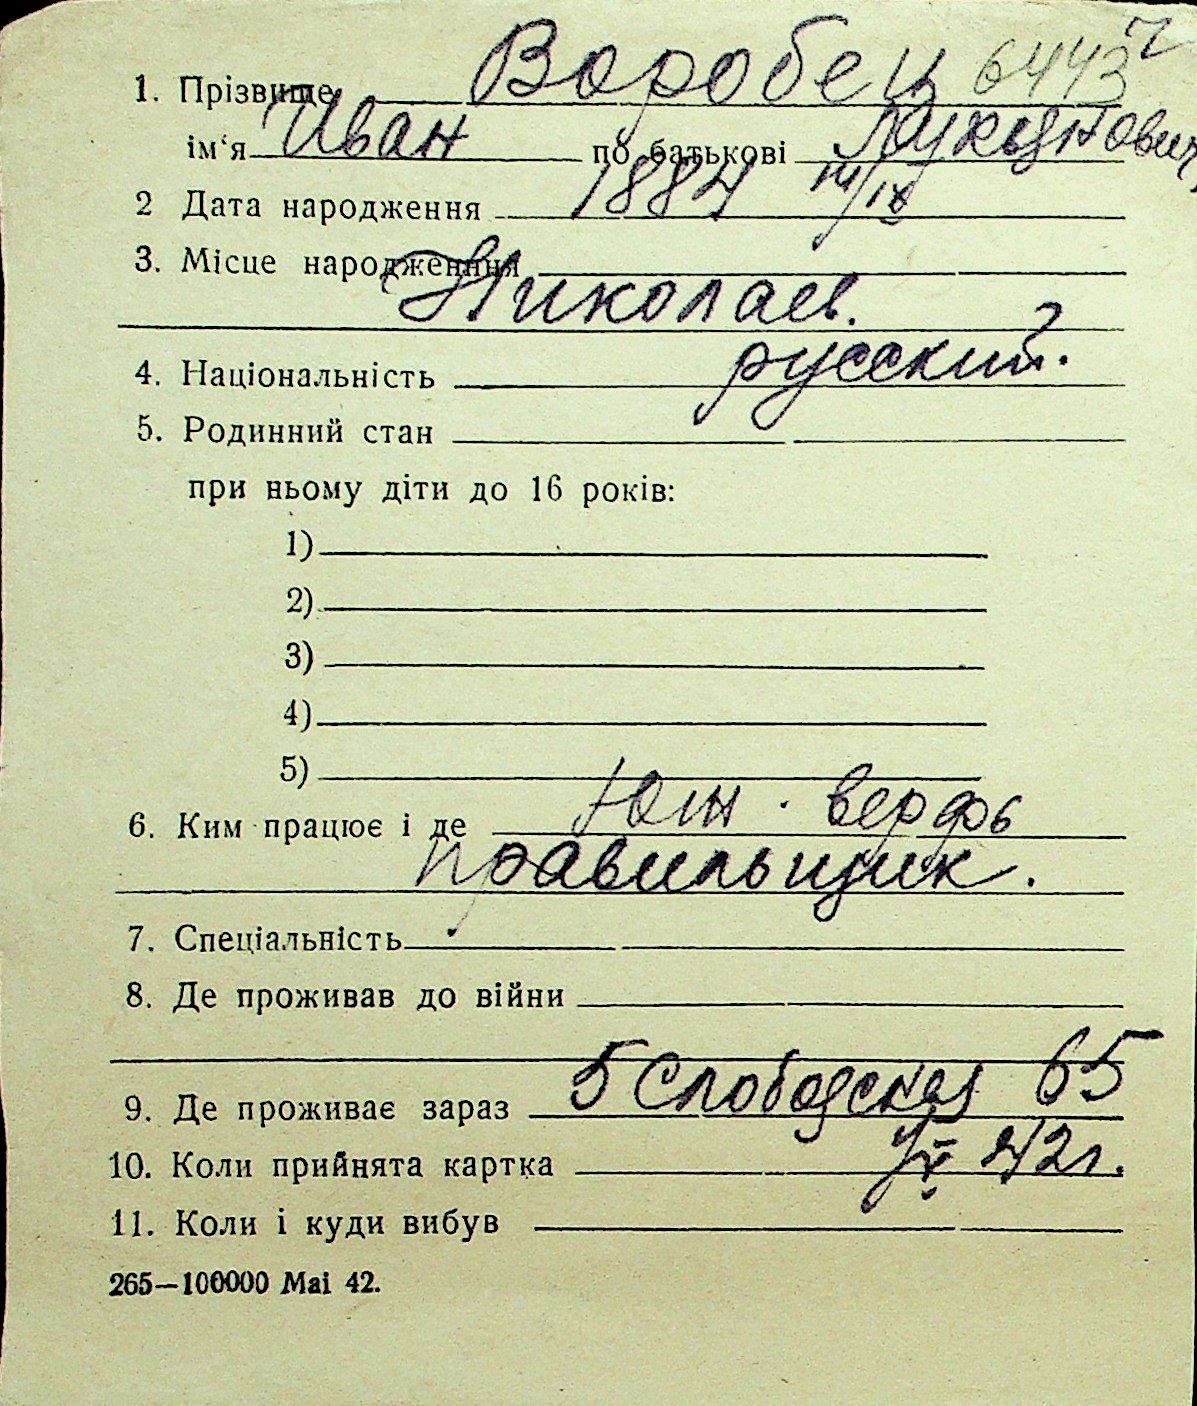 1. Прізвище Воробец 6443
ім‘я Иван по батькові
2 Дата народження 1884
3. Місце народженння
Николаев.
4. Національність русский.
5. Родинний стан
при ньому діти до 16 років:
1)
2)
3)
4)
5)
6. Ким працює і де Юж. верфь
правильщик.
7. Спеціальність
8. Де проживав до війни
9. Де проживає зараз 5 Слободская 65
10. Коли прийнята картка 42г.
11. Коли і куди вибув
265—100000 Mai 42.